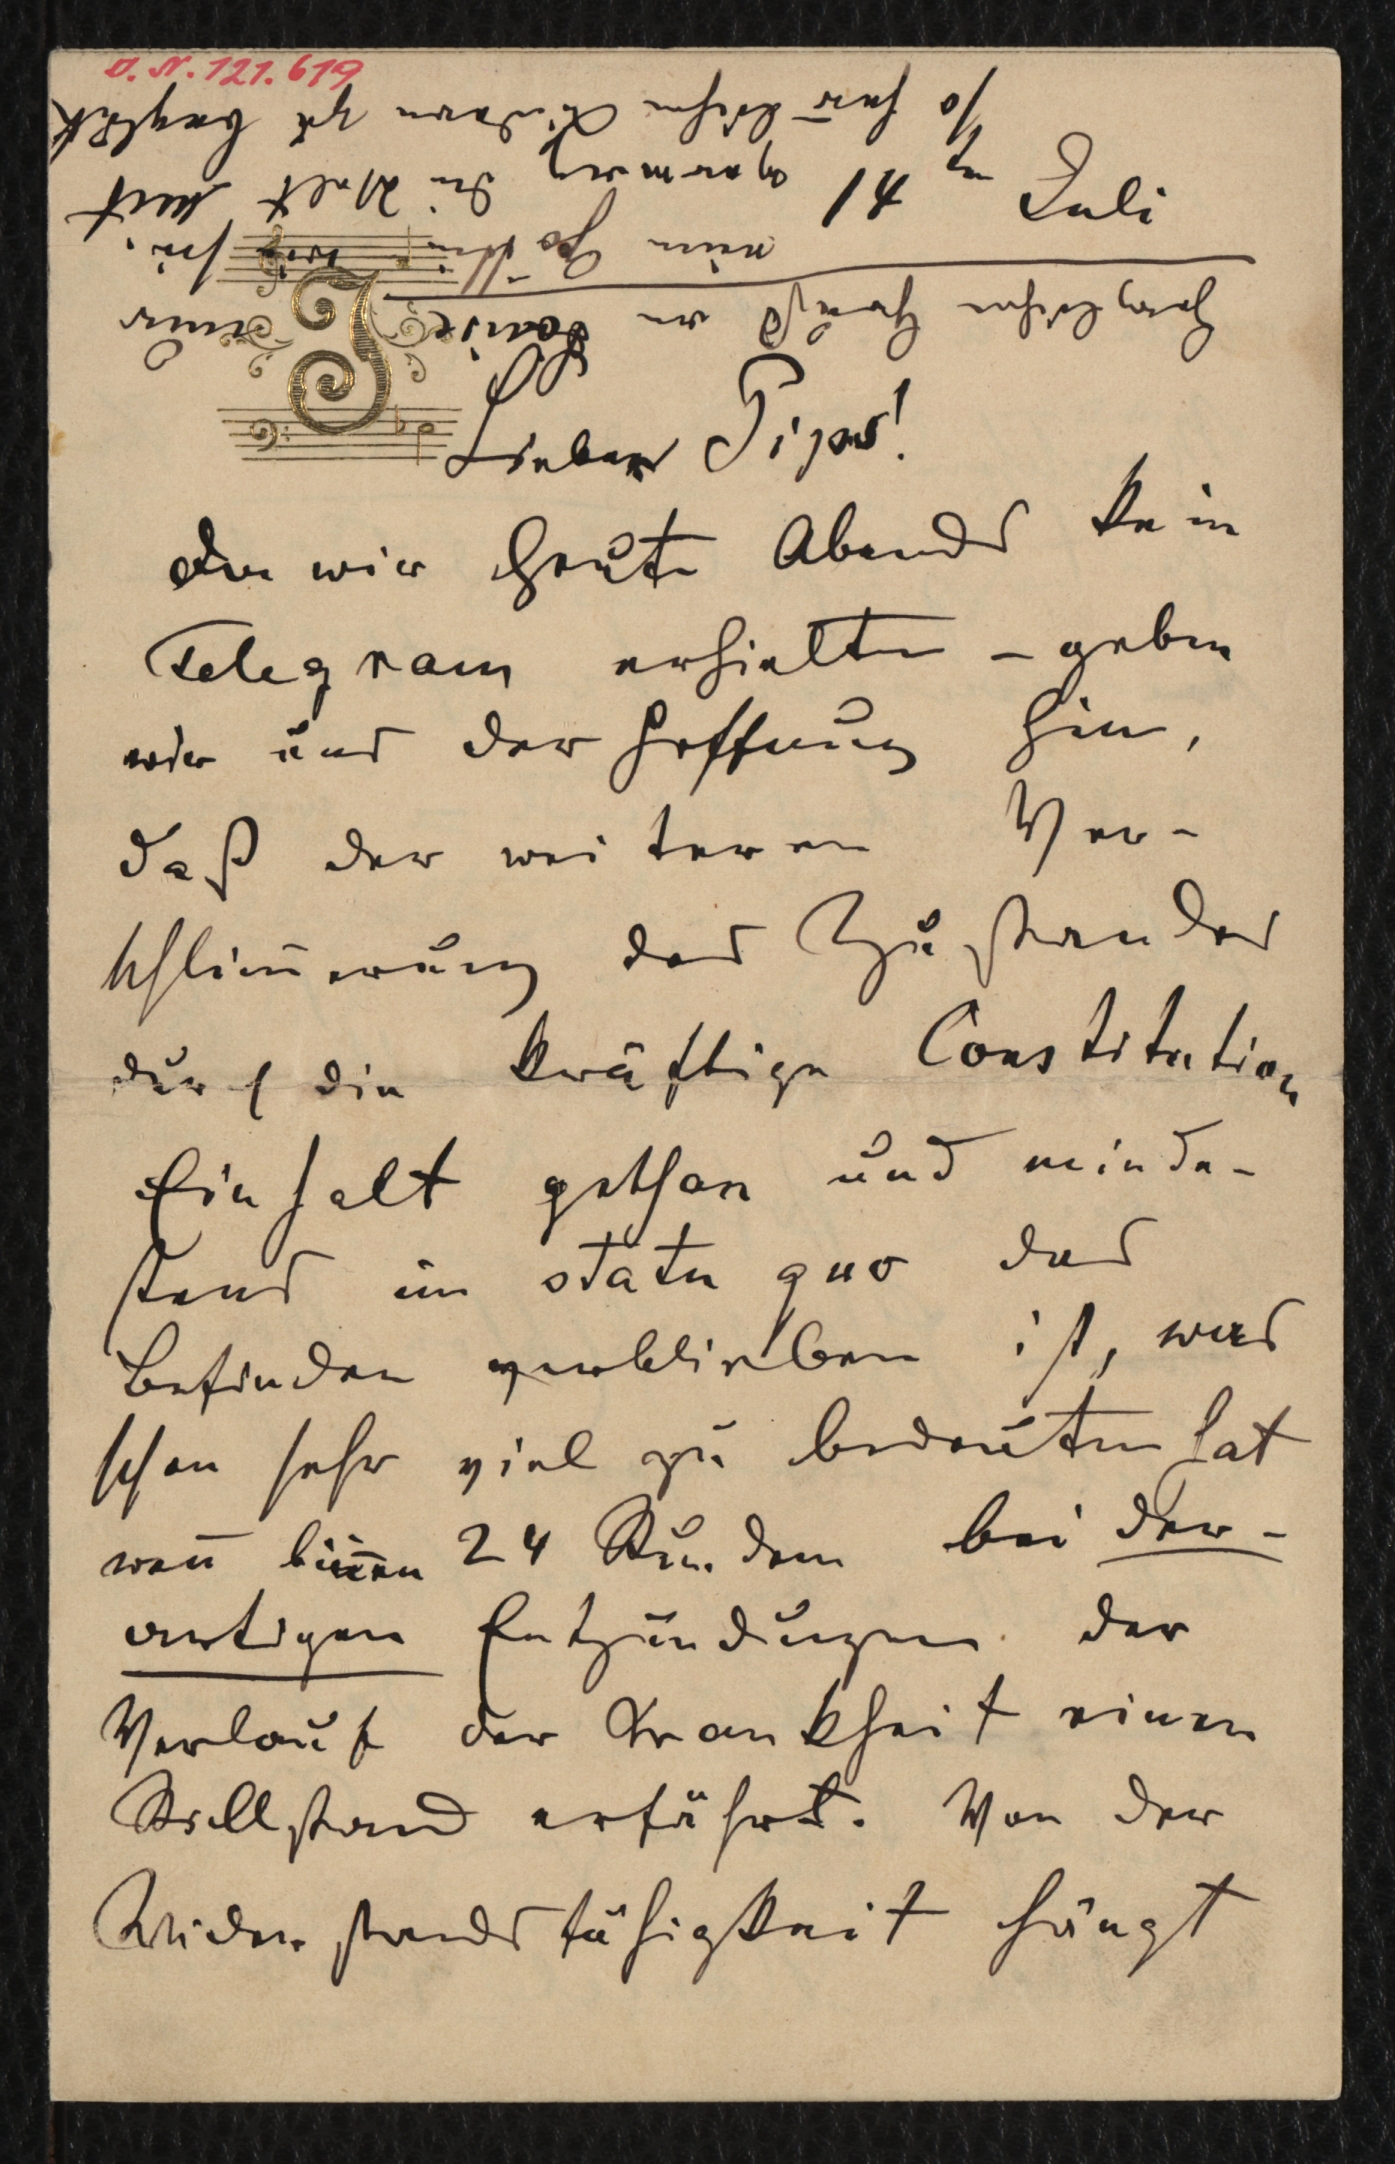 J. N. 121.619
14ten Juli
Lieber Tips!
Da wir heute Abends kein
Telegram erhielten – geben
wir uns der Hoffnung hin,
daß der weiteren Ver-
schlim̅erung des Zustandes
durch die kräftige Constitution
Einhalt gethan und minde-
stens im statu quo das
Befinden verblieben ist, was
schon sehr viel zu bedeuten hat
wen̅ bin̅en 24 Stunden bei der-
artigen Entzündungen der
Verlauf der Krankheit einen
Stillstand erfährt. Von der
Widerstandsfähigkeit hängt
Herzlichen Gruß an Louise
mit
so herzlichen Kindern zu beglückt